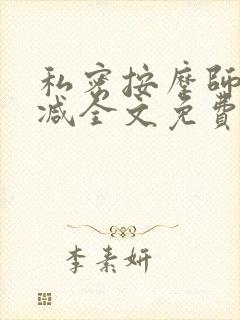 私密按摩師
减全文免費
李素妍